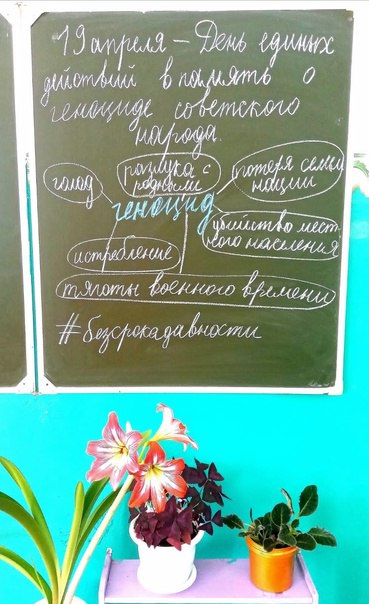 19 апреля – День единых
действий в память о
геноциде советского
народа.
голод
разлука с
родными
потеря семьи
нации
геноцид
убийство мест-
ного населения
истребление
тяготы военного времени
#безсрокадавности